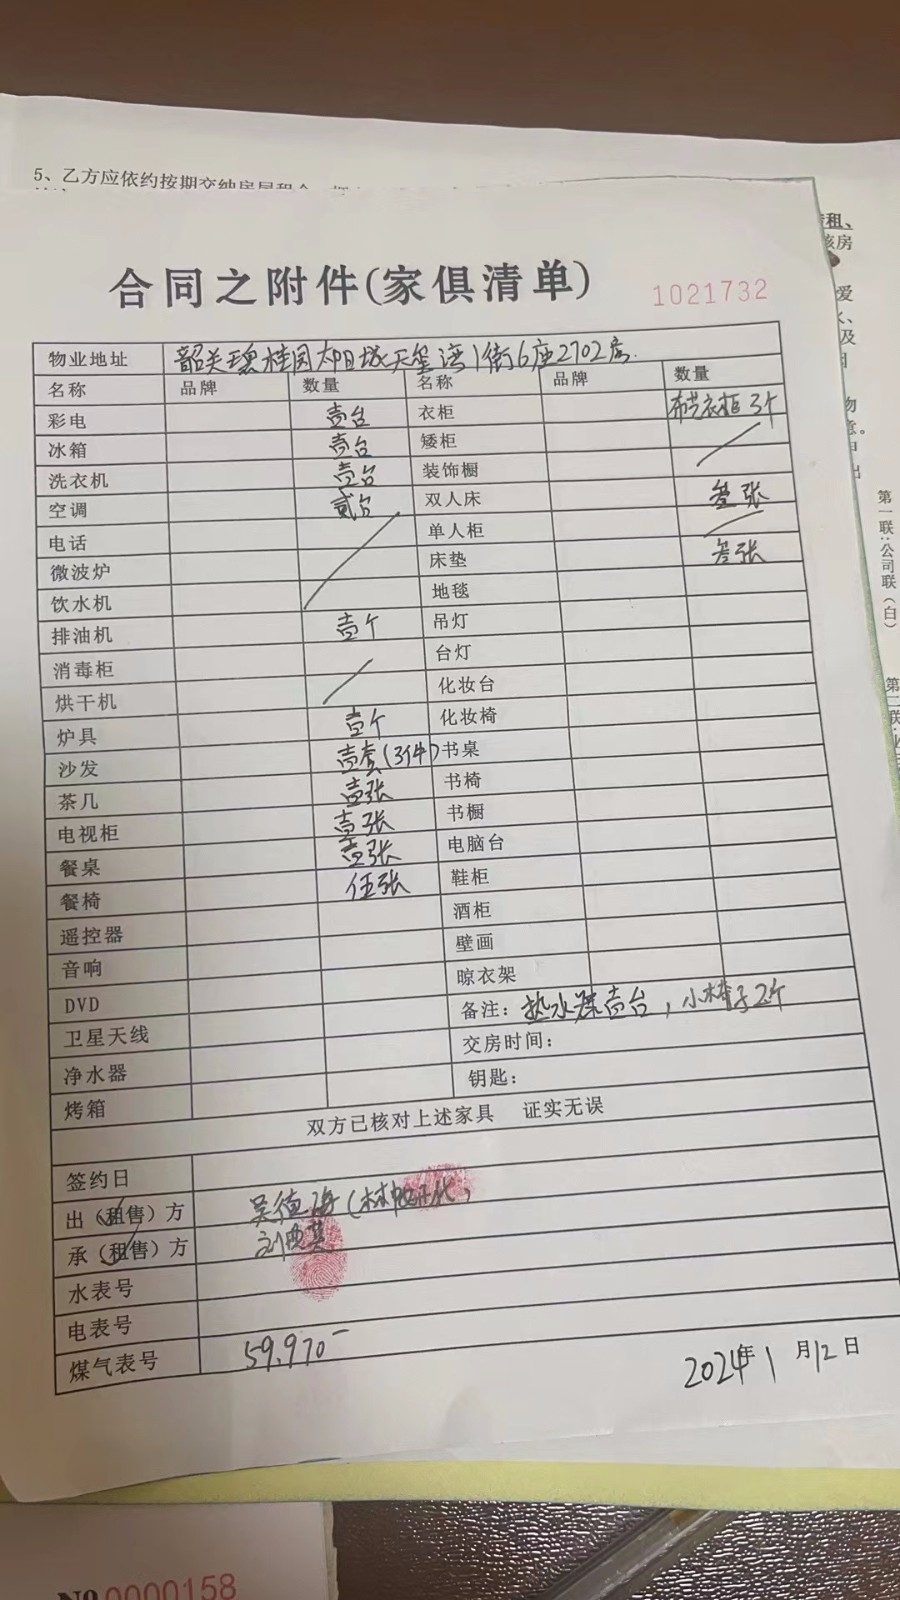 5、乙方应依约按期交纳房屋租金
租、
该房
爱
及
物
意。
出
第一联：公司联（白）
第二联
合同之附件(家俱清单)
1021732
物业地址 韶关碧桂园太阳城天玺湾1街6座2702房.
名称 品牌 数量 名称 品牌 数量
彩电 壹台 衣柜 布艺衣柜3个
冰箱 壹台 矮柜
洗衣机 壹台 装饰橱
空调 贰台 双人床 叁张
电话 单人柜
微波炉 床垫 叁张
饮水机 地毯
排油机 壹个 吊灯
消毒柜 台灯
烘干机 化妆台
炉具 壹个 化妆椅
沙发 壹套(3件) 书桌
茶几 壹张 书椅
电视柜 壹张 书橱
餐桌 壹张 电脑台
餐椅 伍张 鞋柜
遥控器 酒柜
音响 壁画
DVD 晾衣架
卫星天线 备注：热水器壹台，小椅子2个
净水器 交房时间：
烤箱 钥匙：
双方已核对上述家具 证实无误
签约日
出（租售）方 吴德海(林
承（租售）方 刘
水表号
电表号
煤气表号 59.970-
2024年1月12日
Nº 0000158